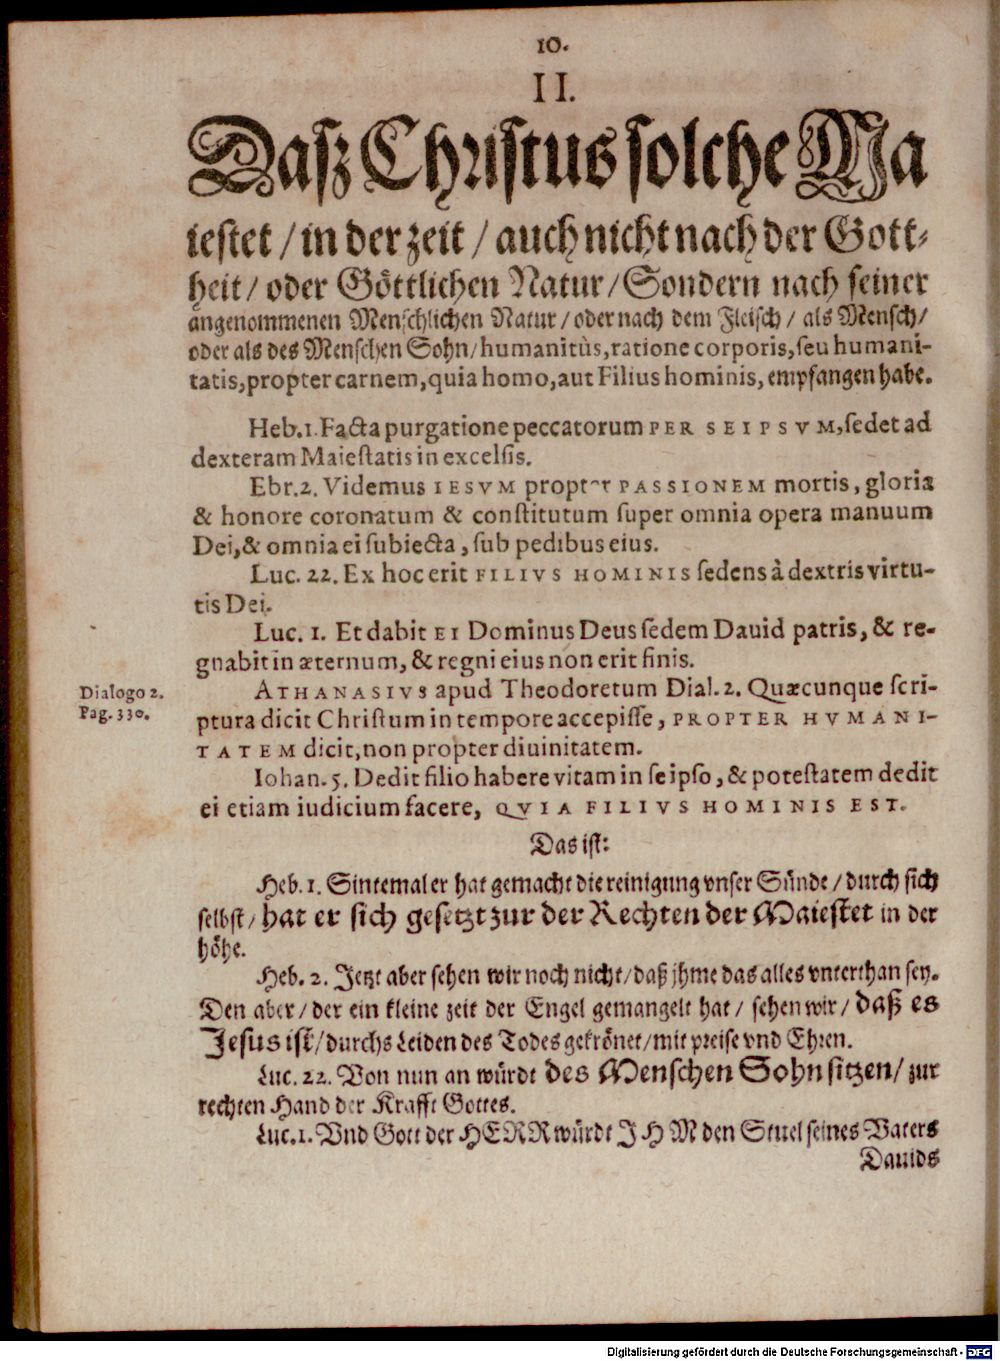 10.
II.
Daſz Chriſtus ſolche Ma
ieſtet / in der zeit / auch nicht nach der Gott⸗
heit / oder Göttlichen Natur / Sondern nach ſeiner
angenommenen Menſchlichen Natur / oder nach dem Fleiſch / als Menſch /
oder als des Menſchen Sohn / humanitùs, ratione corporis, ſeu humani-
tatis, propter carnem, quia homo, aut Filius hominis, empfangen habe.
Heb. 1. Facta purgatione peccatorum PER SEIPSVM, ſedet ad
dexteram Maieſtatis in excelſis.
Ebr. 2. Videmus IESVM propter PASSIONEM mortis, gloria
& honore coronatum & conſtitutum ſuper omnia opera manuum
Dei, & omnia ei ſubiecta, ſub pedibus eius.
Luc. 22. Ex hoc erit FILIVS HOMINIS ſedens à dextris virtu-
tis Dei.
Luc. 1. Et dabit EI Dominus Deus ſedem Dauid patris, & re-
gnabit in æternum, & regni eius non erit finis.
Dialogo 2.
Pag. 330.
ATHANASIVS apud Theodoretum Dial. 2. Quæcunque ſcri-
ptura dicit Chriſtum in tempore accepiſſe, PROPTER HVMANI-
TATEM dicit, non propter diuinitatem.
Iohan. 5. Dedit filio habere vitam in ſeipſo, & poteſtatem dedit
ei etiam iudicium facere, QVIA FILIVS HOMINIS EST.
Das iſt:
Heb. 1. Sintemal er hat gemacht die reinigung vnſer Sünde / durch ſich
ſelbſt / hat er ſich geſetzt zur der Rechten der Maieſtet in der
höhe.
Heb. 2. Jetzt aber ſehen wir noch nicht / daß jhme das alles vnterthan ſey.
Den aber / der ein kleine zeit der Engel gemangelt hat / ſehen wir / daß es
Jeſus iſt / durchs Leiden des Todes gekrönet / mit preiſe vnd Ehren.
Luc. 22. Von nun an würdt des Menſchen Sohn ſitzen / zur
rechten Hand der Krafft Gottes.
Luc. 1. Vnd Gott der HERR würdt JHM den Stuel ſeines Vaters
Dauids
Digitalisierung gefördert durch die Deutsche Forschungsgemeinschaft - DFG